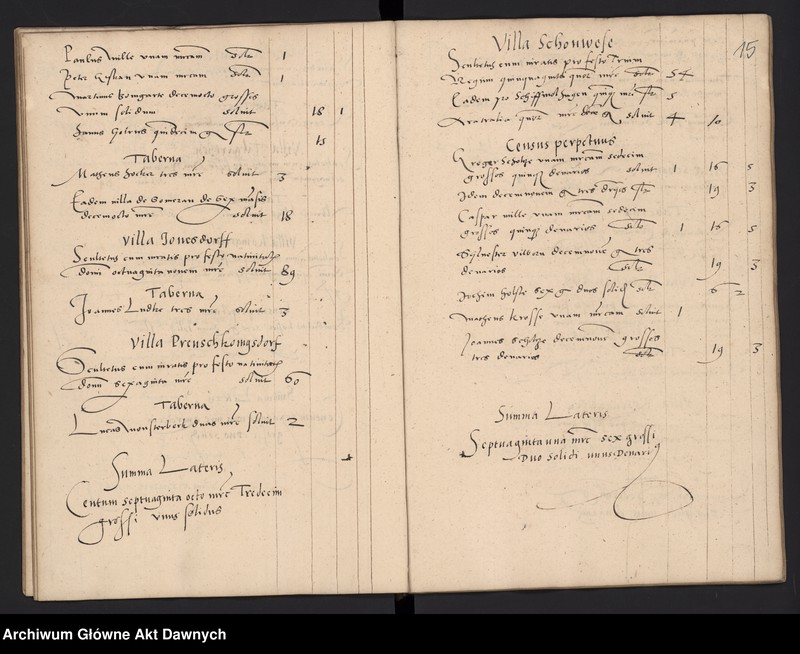 Paulus Wille unam mrcam solt 1
Peter Kistan unam mrcam solt 1
Martinus bomgarte decemocto grossos
Unum solidum soluit 18 1
Hanus Gotrus quindecim g solt 15
Taberna
Matheus hocker tres mrc soluit 3
Eadem villa de Gomeran de sex mansis
decemocto mrc soluit 18
Villa Jonesdorff
Scultetus cum iuratis pro festo natiuitatis
domini octuaginta nouem mrc soluit 89
Taberna
Joannes Ludke tres mrc soluit 3
Villa Preuschkonigsdorf
Scultetus cum iuratis pro festo natiuitatis
domini sexaginta mrc soluit 60
Taberna
Lucas Monsterberk duas mrc soluit 2
Summa Lateris
Centum septuaginta octo mrc Tredecim
grossi unus solidus
15
Villa Schonwese
Scultetus cum iuratis pro festo Trium
Regum quinquaginta quatuor mrc solt 54
Eadem pro Schiffmolhagen quinque mrc solt 5
quatuor mrc decem g soluit 4 10
Census perpetuus
Greger Scholtze unam mrcam sedecim
grossos quinque denarios soluit 1 16 5
Idem decemnouem g tres denarios solt 19 3
Caspar wille unam mrcam sedecim
grossos quinque denarios solt 1 16 5
Syluester decemnouem g tres
denarios solt 19 3
Jochim holste sex g duos solidos solt 6 2
Matheus krosse unam mrcam soluit 1
Joannes scholtze decemnouem grossos
tres denarios solt 19 3
Summa Lateris
Septuaginta una mrc sex grossi
Duo solidi unus Denarius
Archiwum Główne Akt Dawnych